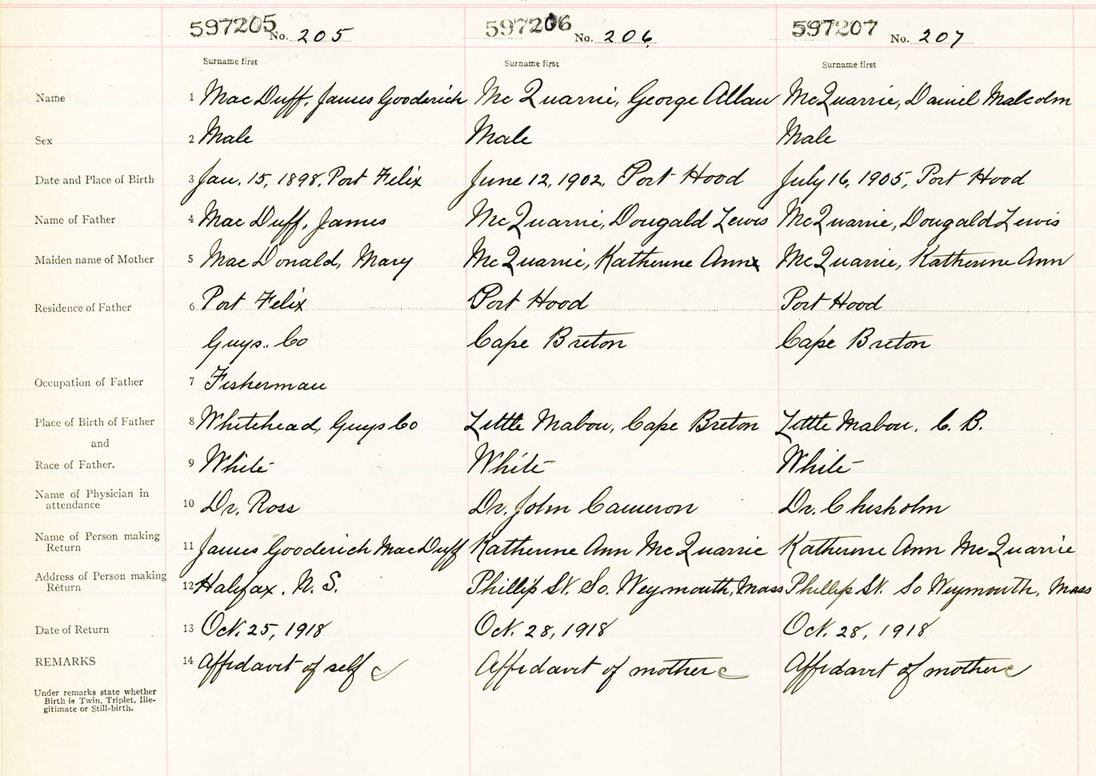 597205 No. 205 597206 No. 206 597207 No. 207
Surname first Surname first Surname first
Name 1 MacDuff, James Gooderich McQuarrie, George Allan McQuarrie, Daniel Malcolm
Sex 2 Male Male Male
Date and Place of Birth 3 Jan. 15, 1898, Port Felix June 12, 1902, Port Hood July 16, 1905, Port Hood
Name of Father 4 MacDuff, James McQuarrie, Dougald Lewis McQuarrie, Dougald Lewis
Maiden name of Mother 5 MacDonald, Mary McQuarrie, Katherine Ann McQuarrie, Katherine Ann
Residence of Father 6 Port Felix Port Hood Port Hood
Guys. Co Cape Breton Cape Breton
Occupation of Father 7 Fisherman
Place of Birth of Father 8 Whitehead, Guys Co Little Mabou, Cape Breton Little Mabou, C. B.
and
Race of Father. 9 White White White
Name of Physician in
attendance 10 Dr. Ross Dr. John Cameron Dr. Chisholm
Name of Person making
Return 11 James Gooderich MacDuff Katherine Ann McQuarrie Katherine Ann McQuarrie
Address of Person making
Return 12 Halifax, N. S. Phillip St. So. Weymouth, Mass Phillip St. So Weymouth, Mass
Date of Return 13 Oct. 25, 1918 Oct. 28, 1918 Oct. 28, 1918
REMARKS 14 Affidavit of self Affidavit of mother Affidavit of mother
Under remarks state whether
Birth is Twin, Triplet, Ille-
gitimate or Still-birth.